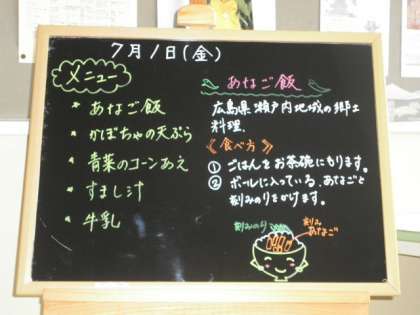 7月1日(金)
メニュー
* あなご飯
* かぼちゃの天ぷら
* 青菜のコーンあえ
* すまし汁
* 牛乳
あなご飯
広島県瀬戸内地域の郷土
料理.
《食べ方》
① ごはんをお茶碗にもります。
② ボールに入っている、あなごと
刻みのりをかけます。
刻みのり
刻み
あなご